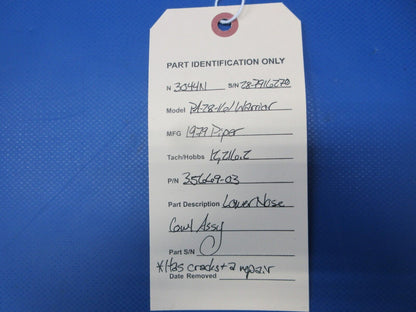 PART IDENTIFICATION ONLY
N 3044N S/N 28-7916270
Model PA-28-161 Warrior
MFG 1979 Piper
Tach/Hobbs 12,216.2
P/N 35669-03
Part Description Lower Nose
Cowl Assy
Part S/N
*Has cracks + a repair
Date Removed